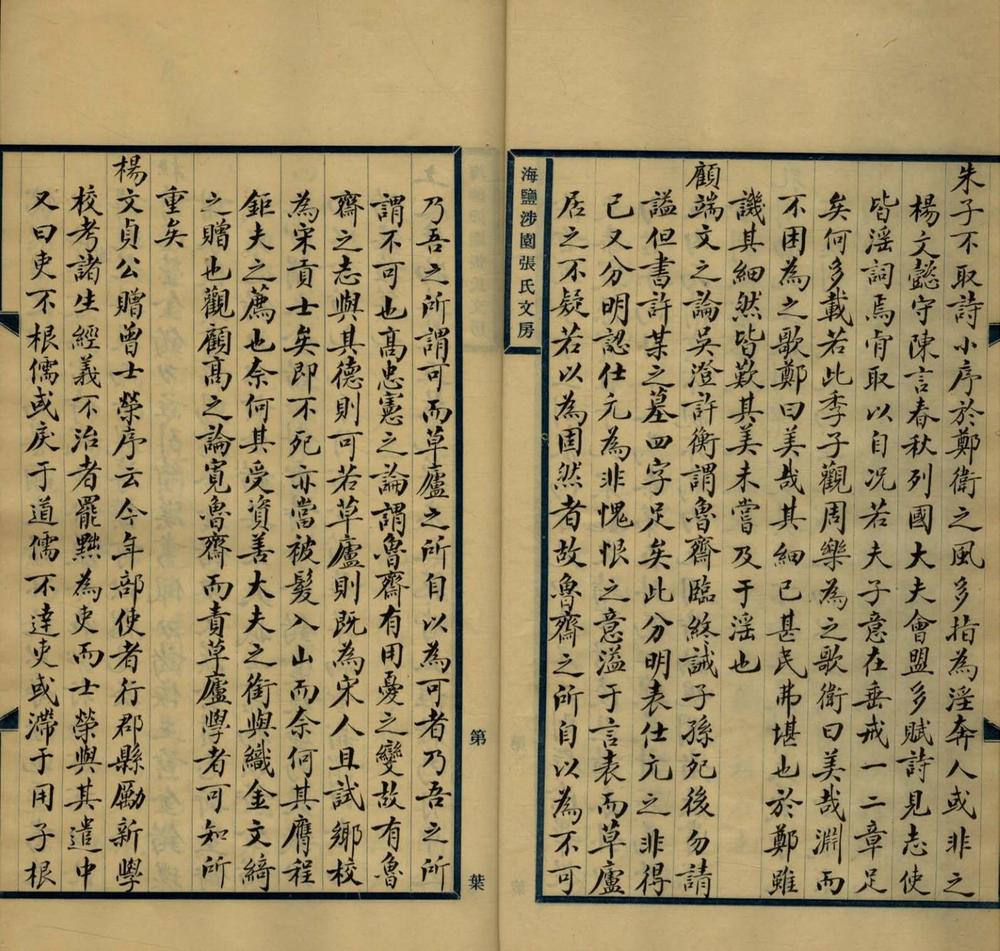 朱子不取詩小序於鄭衛之風多指為淫奔人或非之
楊文懿守陳言春秋列國大夫會盟多賦詩見志使
皆淫詞焉肯取以自況若夫子意在垂戒一二章足
矣何多載若此季子觀周樂為之歌衛曰美哉淵而
不困為之歌鄭曰美哉其細已甚民弗堪也於鄭雖
譏其細然皆歎其美未嘗及于淫也
顧端文之論吳澄許衡謂魯齋臨終誡子孫死後勿請
謚但書許某之墓四字足矣此分明表仕亢之非得
已又分明認仕元為非愧恨之意溢于言表而草廬
居之不疑若以為固然者故魯齋之所自以為不可
海鹽涉園張氏文房
第
葉
乃吾之所謂可而草廬之所自以為可者乃吾之所
謂不可也高忠憲之論謂魯齋有用憂之變故有魯
齋之志與其德則可若草廬則既為宋人且試鄉校
為宋貢士矣即不死亦當被髮入山而奈何其膺程
鉅夫之薦也奈何其受資善大夫之銜與織金文綺
之贈也觀顧高之論寬魯齋而責草廬學者可知所
重矣
楊文貞公贈曾士榮序云今年部使者行郡縣勵新學
校考諸生經義不治者罷黜為吏而士榮與其遣中
又曰吏不根儒或戾于道儒不達吏或滯于用子根